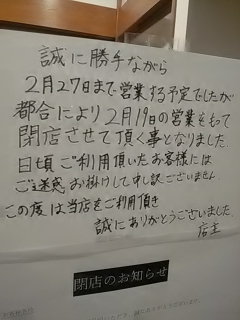 誠に勝手ながら
2月27日まで営業する予定でしたが
都合により2月19日の営業をもって
閉店させて頂く事となりました
日頃ご利用頂いたお客様には
ご迷惑お掛けして申し訳ございません
この度は当店をご利用頂き
誠にありがとうございました
店主
閉店のお知らせ